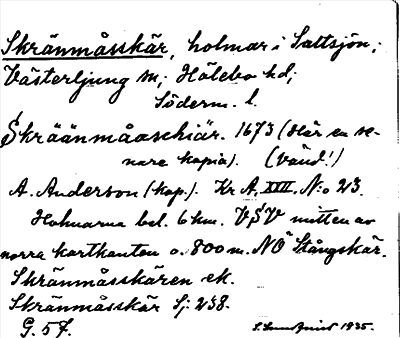 Skränmåsskär, holmar i Saltsjön;
Västerljung sn; Hölebo hd;
Söderm. l.
Skräänmåaschiär. 1673 (Här en se-
nare kopia). (vänd!)
A. Anderson (kop.). Kr A, XVII. N:o 23.
Holmarna bel. 6 km. VSV mitten av
norra kartkanten o. 800 m. NÖ Stångskär.
Skränmåsskären ek.
Skränmåsskär Sj. 238.
G. 57. 1935.